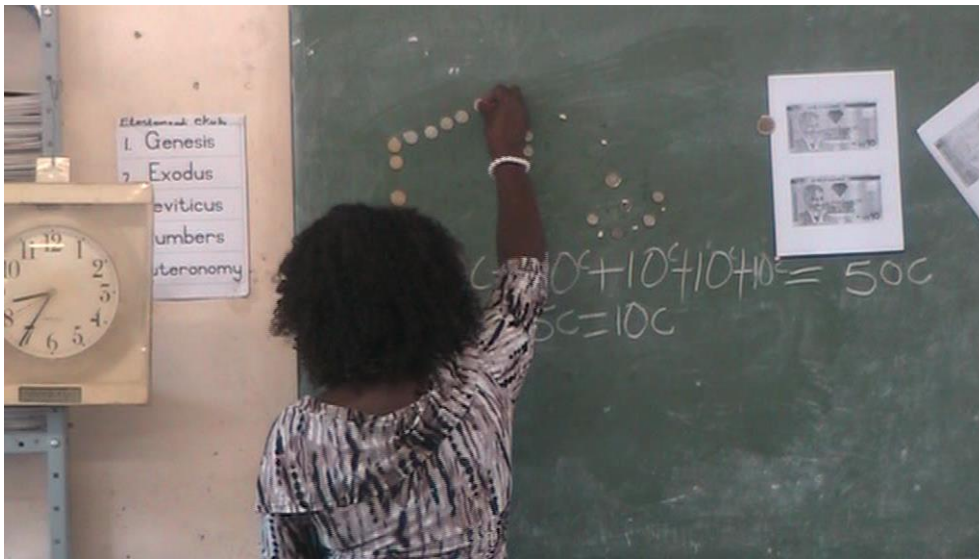 1. Genesis
2. Exodus
eviticus
umbers
uteronomy
12
11
10
2
3
4
5
6
7
8
c+10c+10c+10c+10c=50c
5c=10c
10